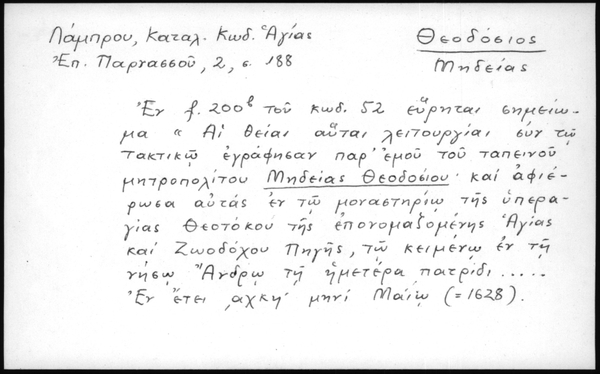 Λάμπρου, Καταλ. Κωδ. Ἁγίας
Ἐπ. Παρνασσοῦ, 2, σ. 188
Θεοδόσιος
Μηδείας
Ἐν f. 200b τοῦ κωδ. 52 εὕρηται σημείω-
μα « Αἱ θεῖαι αὗται λειτουργίαι σὺν τῷ
τακτικῷ ἐγράφησαν παρ' ἐμοῦ τοῦ ταπεινοῦ
μητροπολίτου Μηδείας Θεοδοσίου καὶ ἀφιέ-
ρωσα αὐτὰς ἐν τῷ μοναστηρίῳ τῆς ὑπερα-
γίας Θεοτόκου τῆς ἐπονομαζομένης Ἁγίας
καὶ Ζωοδόχου Πηγῆς, τῷ κειμένῳ ἐν τῇ
νήσῳ Ἄνδρῳ τῇ ἡμετέρᾳ πατρίδι .....
Ἐν ἔτει ͵αχκη' μηνὶ Μαΐῳ (= 1628).